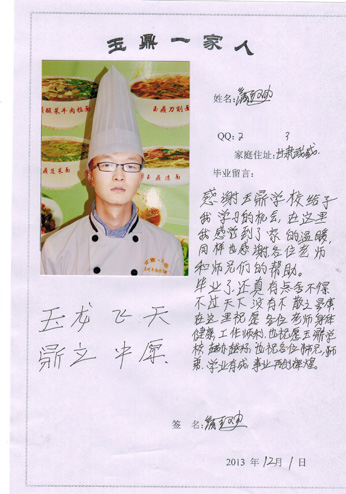 玉鼎一家人
姓名:
QQ: 2 3
家庭住址: 甘肃武威
毕业留言:
感谢玉鼎学校给予
我学习的机会,在这里
我感觉到了家的温暖,
同样也感谢各位老师
和师兄们的帮助。
毕业了,还真有点舍不得
不过天下没有不散之宴席
在这里祝愿各位老师身体
健康,工作顺利,也祝愿玉鼎学
校越办越好,也祝各位师兄,师
弟,学业有成 事业再创辉煌。
玉龙飞天
鼎立中原
签 名:
2013 年 12 月 1 日